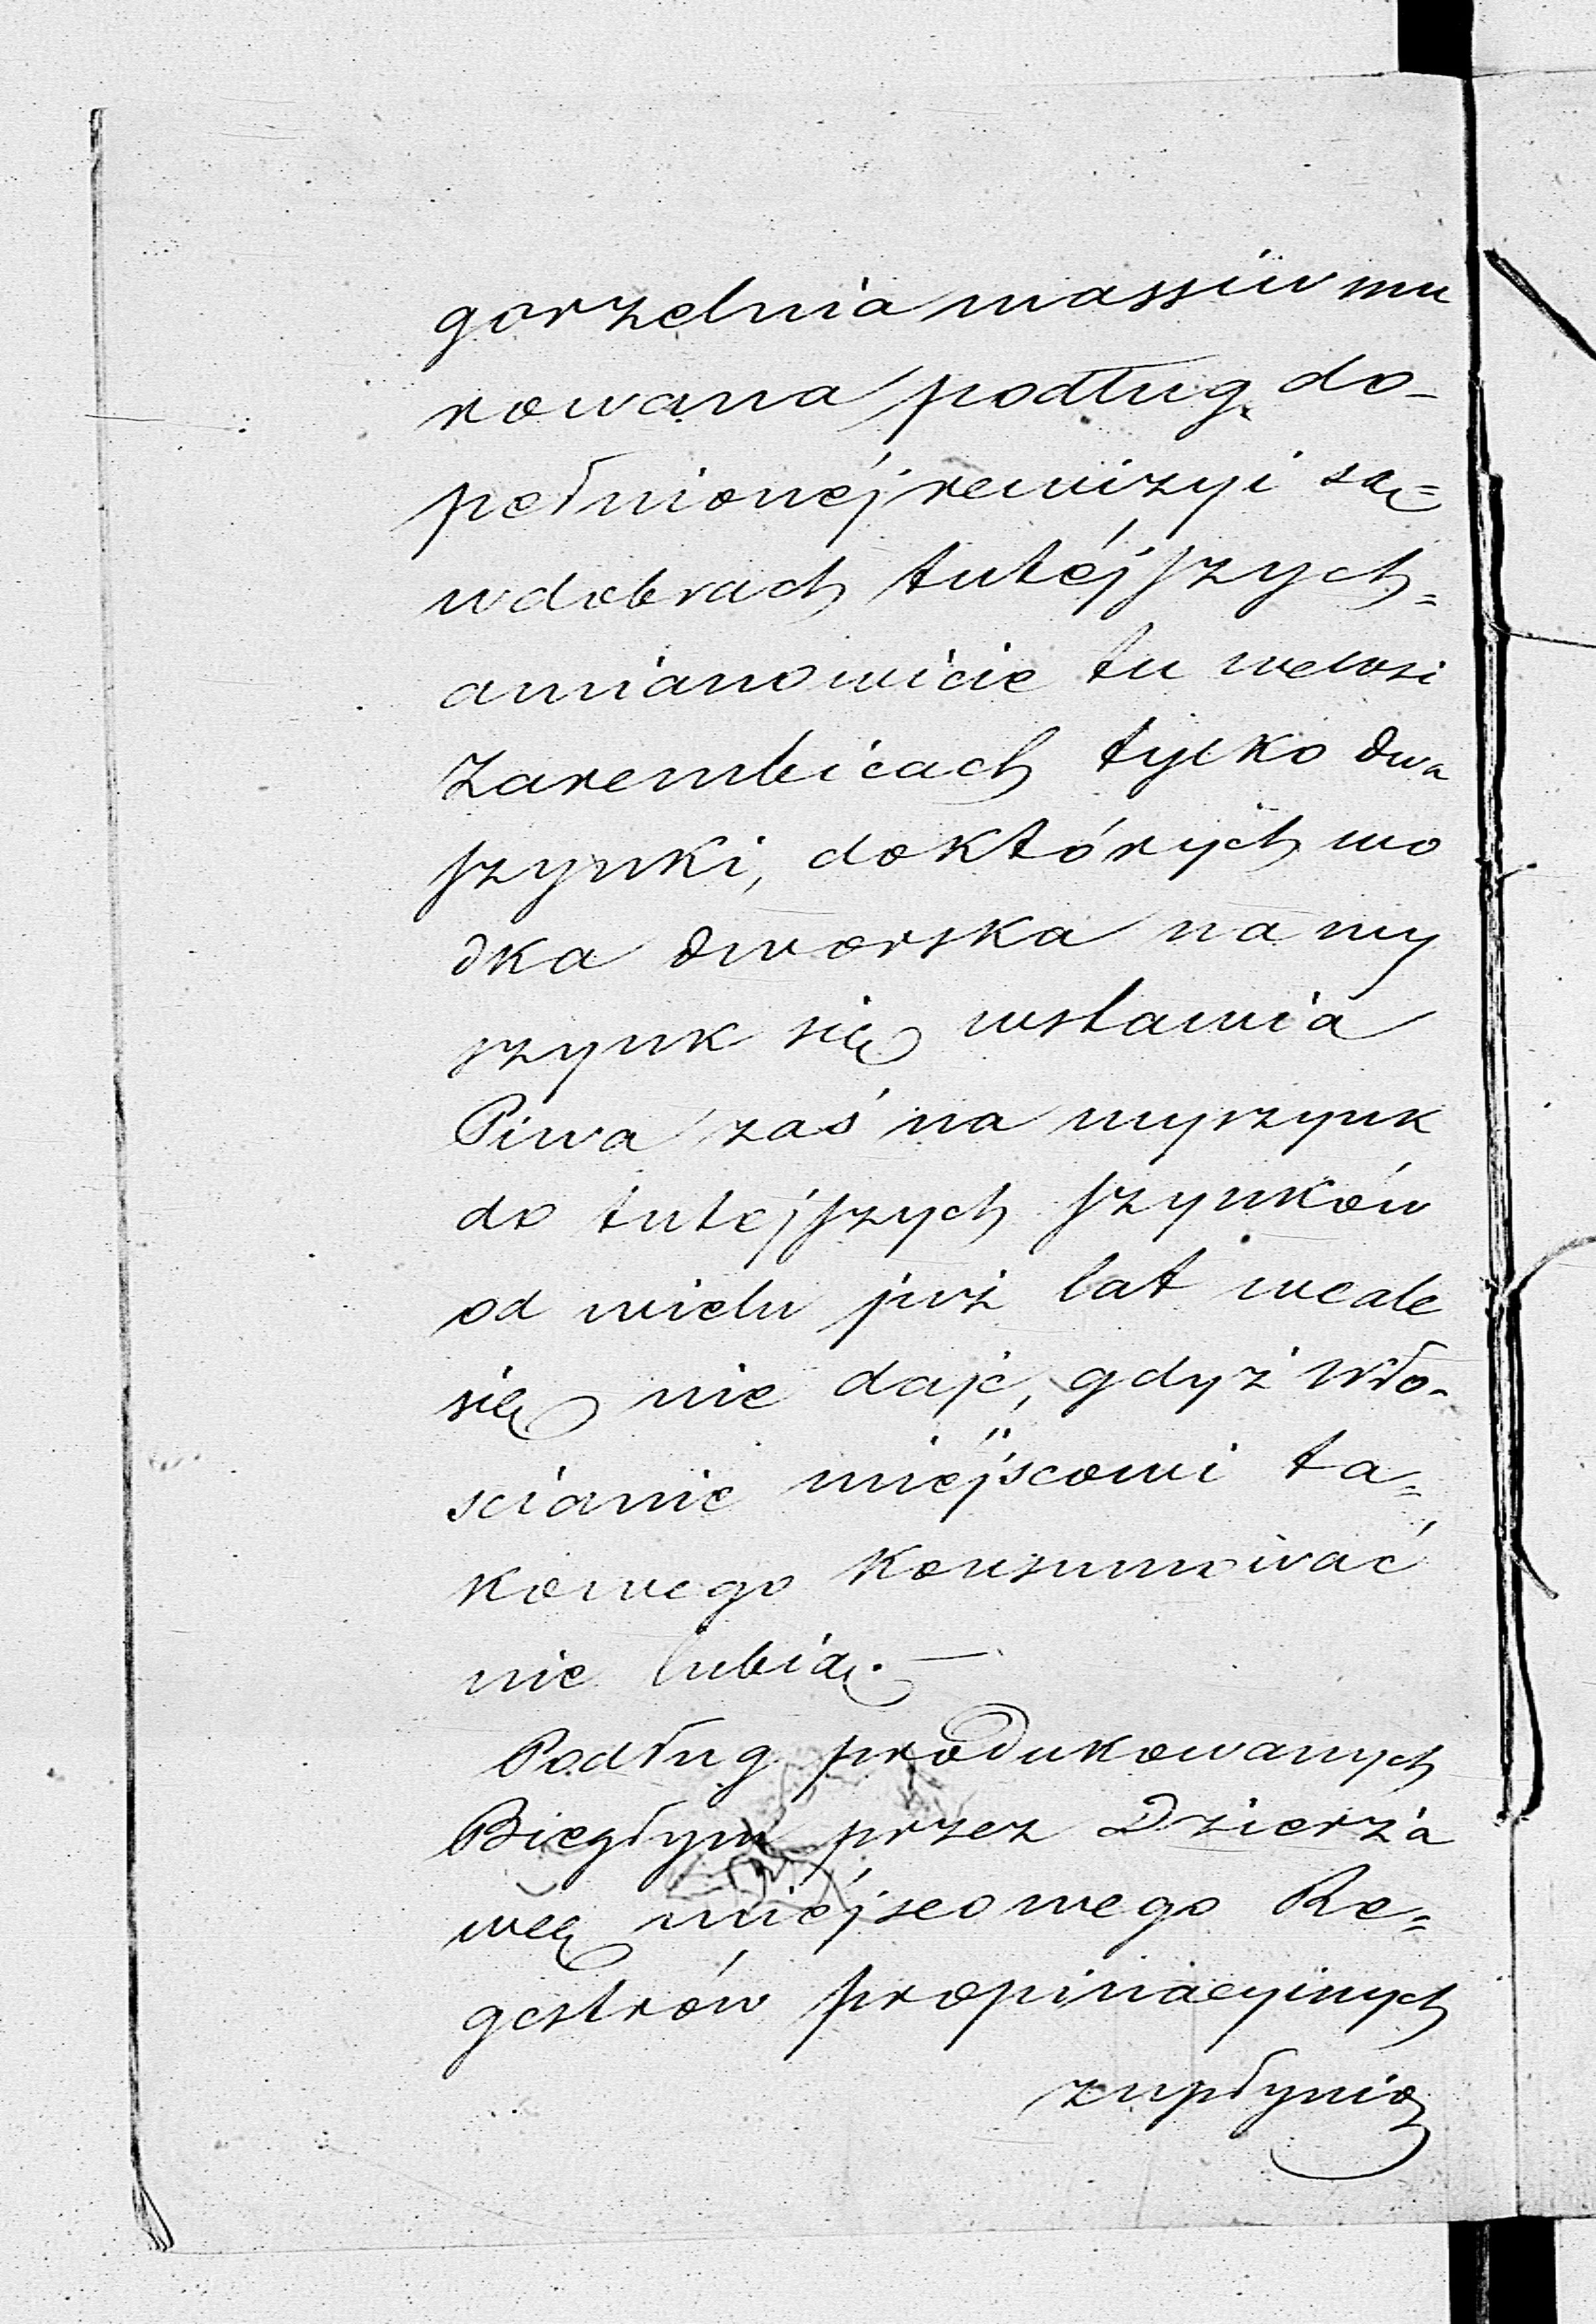 gorzelnia massiw mu
rowana podług do-
pełnionéj rewizyi są=
w dobrach tutéjszych=
a mianowicie tu we wsi
Zarembicach tylko dwa
szynki, do których wo
dka dworska na wy
szynk się wstawia
Piwa zaś na wyszynk
do tutéjszych szynków
od wielu już lat wcale
się nie daje, gdyż Wło-
scianie miéjscowi ta=
kowego konsumować
nie lubią. —
Podług produkowanych
Biegłym przez Dzierża
wcę miéjscowego Re=
gestrów propinacyinych
z upłynio